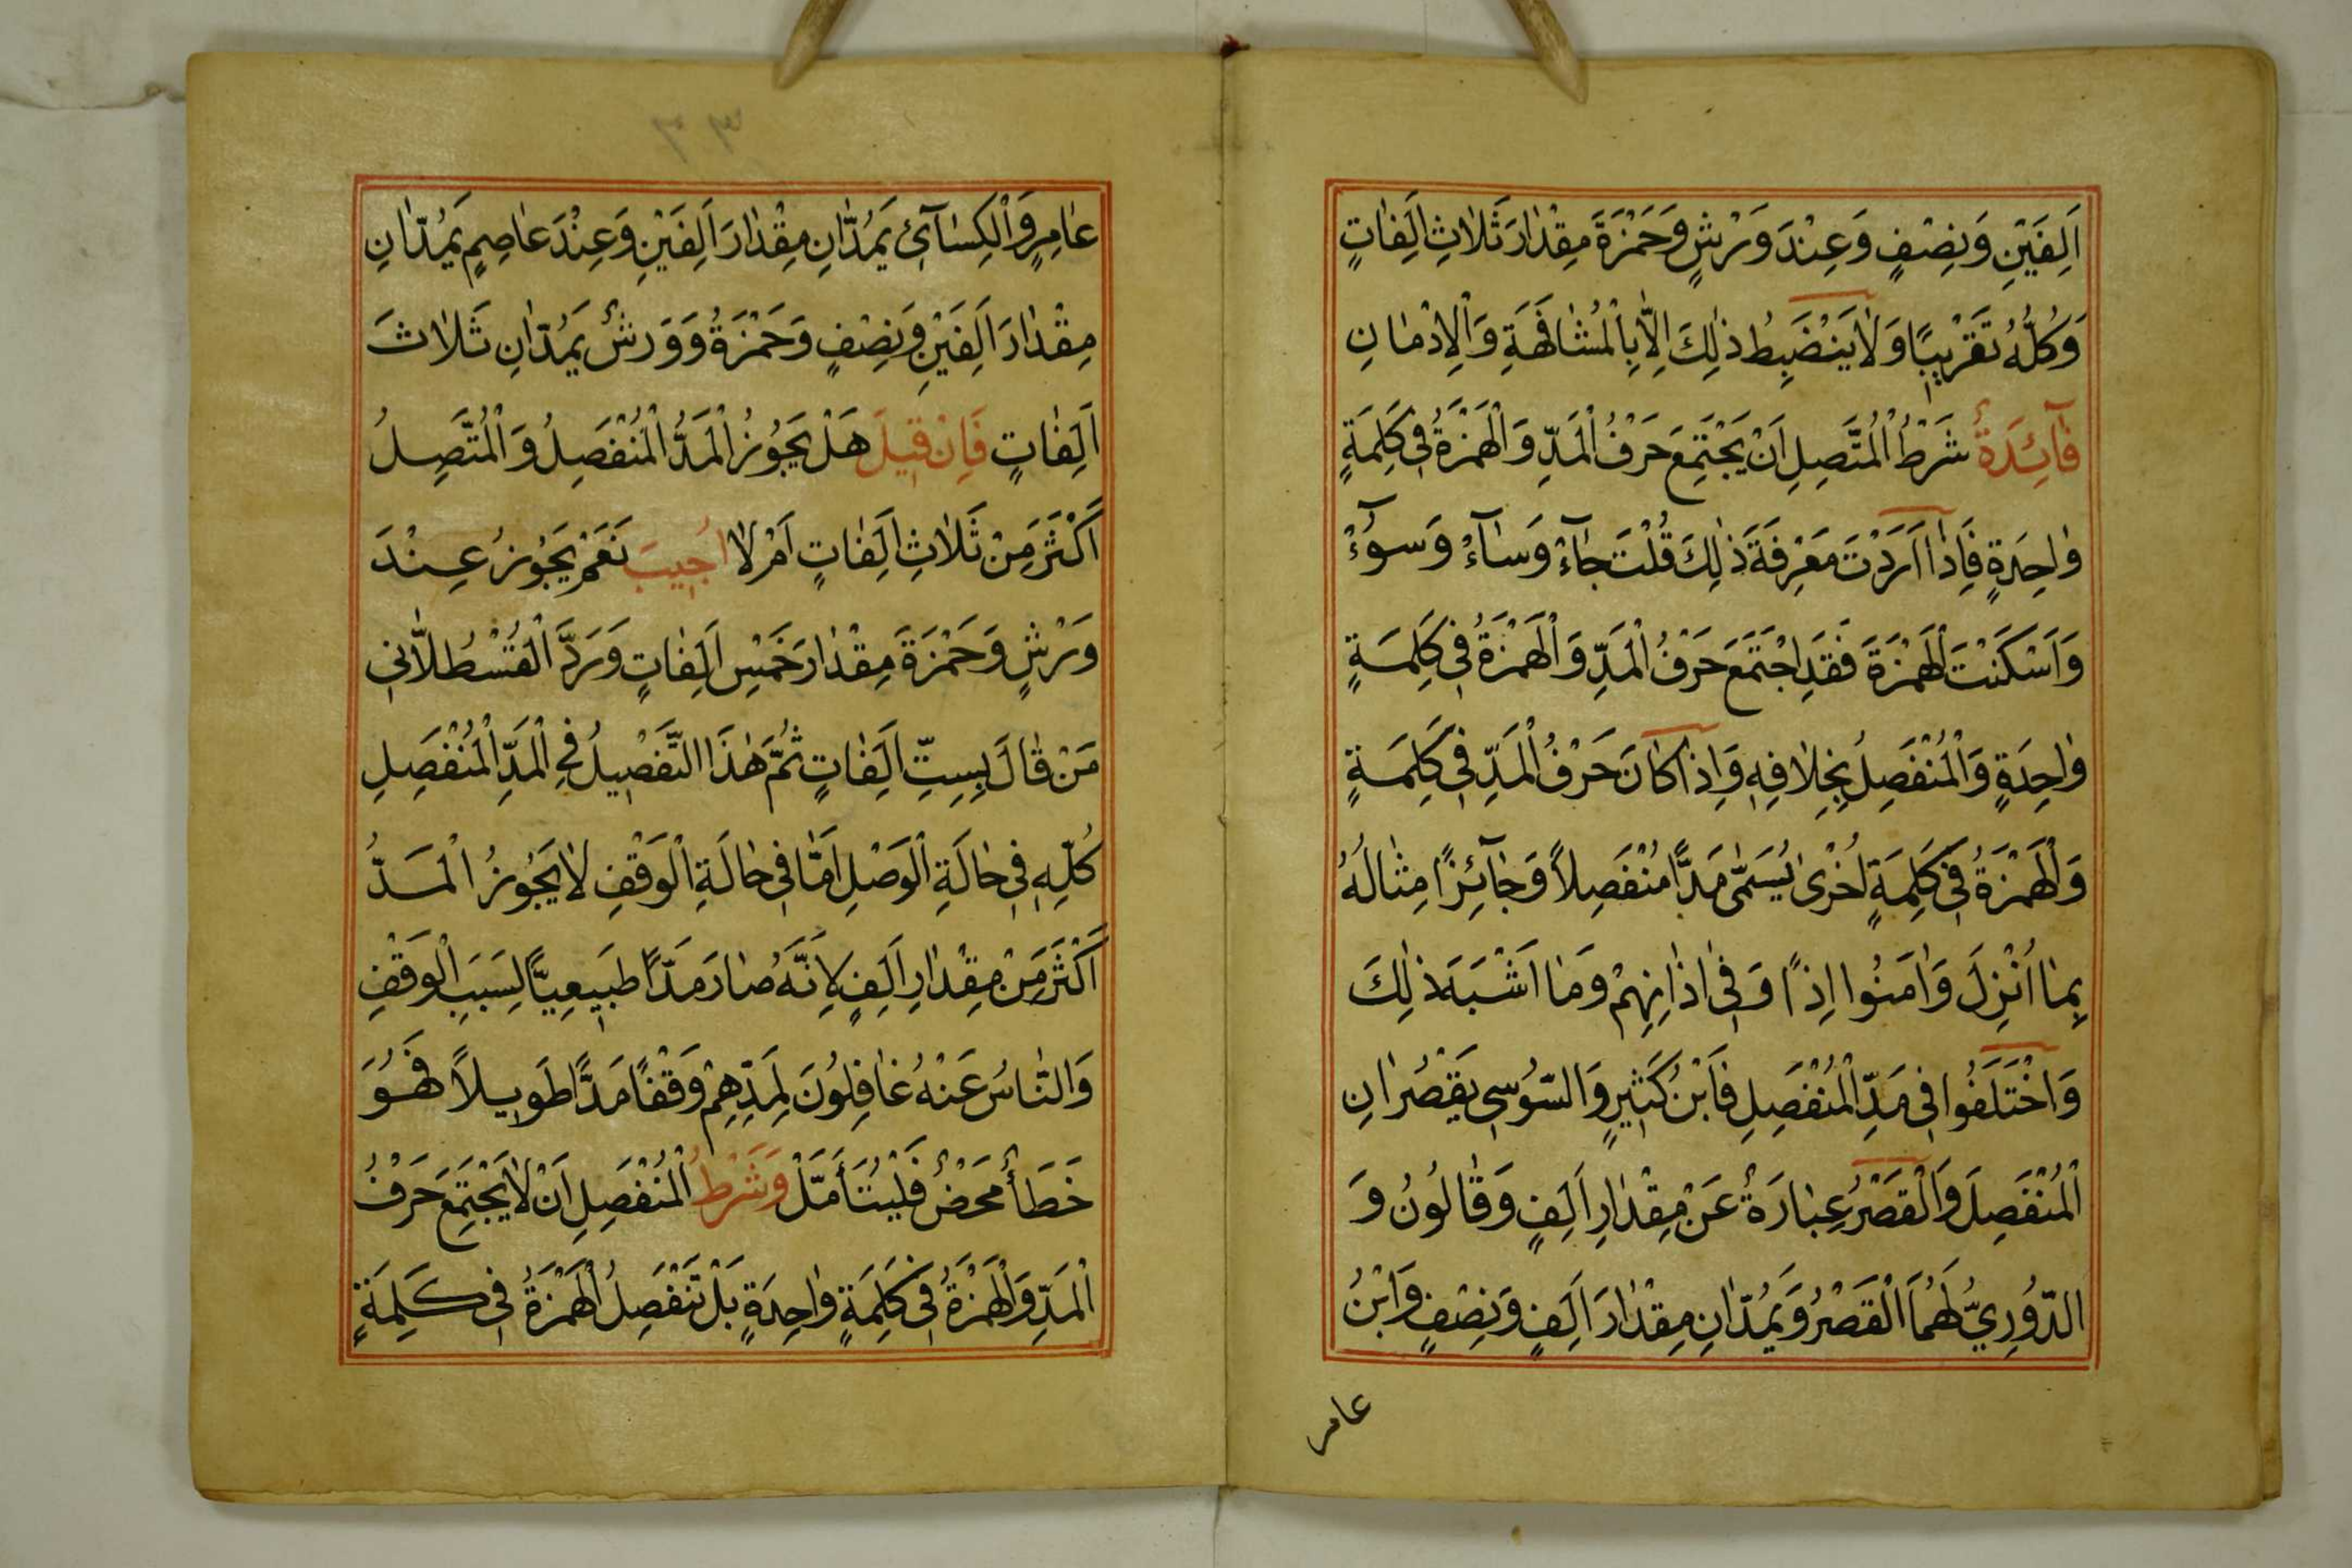 اَلِفَيْنِ وَنِصْفٍ وَعِنْدَ وَرْشٍ وَحَمْزَةَ مِقْدٰارَ ثَلٰاثِ اَلِفٰاتٍ
وَكُلُّهُ تَقْرِيبًا وَلٰا يَنْضَبِطُ ذٰلِكَ اِلّٰا بِالْمُشٰافَهَةِ وَالْاِدْمٰانِ
فٰآئِدَةٌ شَرْطُ الْمُتَّصِلِ اَنْ يَجْتَمِعَ حَرْفُ الْمَدِّ وَالْهَمْزَةُ فِي كَلِمَةٍ
وٰاحِدَةٍ فَاِذٰا اَرَدْتَ مَعْرِفَةَ ذٰلِكَ قُلْتَ جٰآءْ وَسٰآءْ وَسُوٓءْ
وَاَسْكَنْتَ الْهَمْزَةَ فَقَدِ اجْتَمَعَ حَرْفُ الْمَدِّ وَالْهَمْزَةُ فِي كَلِمَةٍ
وٰاحِدَةٍ وَالْمُنْفَصِلُ بِخِلٰافِهِ وَاِذٰا كٰانَ حَرْفُ الْمَدِّ فِي كَلِمَةٍ
وَالْهَمْزَةُ فِي كَلِمَةٍ اُخْرٰى يُسَمّٰى مَدًّا مُنْفَصِلًا وَجٰآئِزًا مِثٰالُهُ
بِمٰا اُنْزِلَ وَاٰمَنُوا اِذًا وَفِي اٰذٰانِهِمْ وَمٰا اَشْبَهَ ذٰلِكَ
وَاخْتَلَفُوا فِي مَدِّ الْمُنْفَصِلِ فَابْنُ كَثِيرٍ وَالسُّوسِي يَقْصُرٰانِ
الْمُنْفَصِلَ وَالْقَصْرُ عِبٰارَةٌ عَنْ مِقْدٰارِ اَلِفٍ وَقٰالُونُ وَ
الدُّورِيُّ لَهُمَا الْقَصْرُ وَيَمُدّٰانِ مِقْدٰارَ اَلِفٍ وَنِصْفٍ وَابْنُ
عامر
عٰامِرٍ وَالْكِسٰآئِي يَمُدّٰانِ مِقْدٰارَ اَلِفَيْنِ وَعِنْدَ عٰاصِمٍ يَمُدّٰانِ
مِقْدٰارَ اَلِفَيْنِ وَنِصْفٍ وَحَمْزَةُ وَوَرْشٌ يَمُدّٰانِ ثَلٰاثَ
اَلِفٰاتٍ فَاِنْ قِيلَ هَلْ يَجُوزُ الْمَدُّ الْمُنْفَصِلُ وَالْمُتَّصِلُ
اَكْثَرَ مِنْ ثَلٰاثِ اَلِفٰاتٍ اَمْ لٰا اُجِيبَ نَعَمْ يَجُوزُ عِنْدَ
وَرْشٍ وَحَمْزَةَ مِقْدٰارَ خَمْسِ اَلِفٰاتٍ وَرَدَّ الْقُسْطُلّٰانِي
مَنْ قٰالَ بِسِتِّ اَلِفٰاتٍ ثُمَّ هٰذَا التَّفْصِيلُ فِي الْمَدِّ الْمُنْفَصِلِ
كُلِّهِ فِي حٰالَةِ الْوَصْلِ اَمّٰا فِي حٰالَةِ الْوَقْفِ لٰا يَجُوزُ الْمَدُّ
اَكْثَرَ مِنْ مِقْدٰارِ اَلِفٍ لِاَنَّهُ صٰارَ مَدًّا طَبِيعِيًّا لِسَبَبِ الْوَقْفِ
وَالنّٰاسُ عَنْهُ غٰافِلُونَ لِمَدِّهِمْ وَقْفًا مَدًّا طَوِيلًا فَهُوَ
خَطَأٌ مَحْضٌ فَلْيُتَأَمَّلْ وَشَرْطُ الْمُنْفَصِلِ اَنْ لٰا يَجْتَمِعَ حَرْفُ
الْمَدِّ وَالْهَمْزَةُ فِي كَلِمَةٍ وٰاحِدَةٍ بَلْ تَنْفَصِلُ الْهَمْزَةُ فِي كَلِمَةٍ